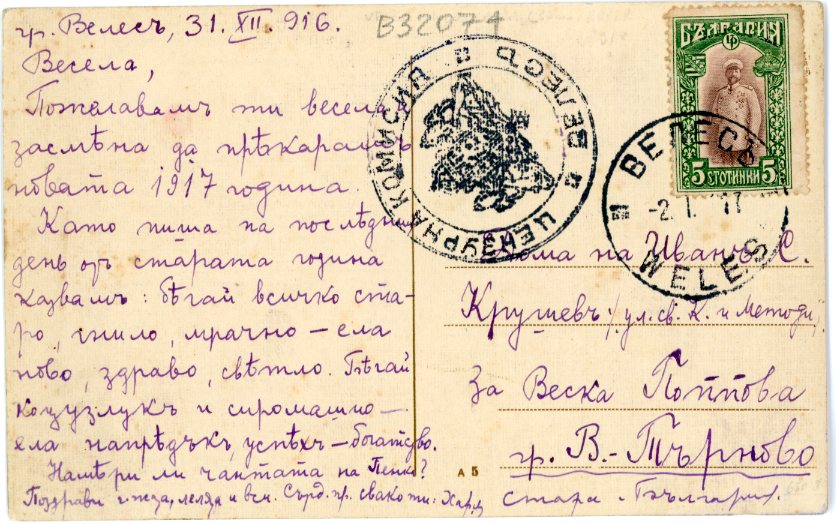 гр. Велесъ, 31. XII. 916.
Весела,
Пожелавамъ ти весела и
засмѣна да прѣкарашъ
новата 1917 година.
Като пиша на послѣдния
день отъ старата година
казвамъ: бѣгай всичко ста-
ро, гнило, мрачно — ела
ново, здраво, свѣтло. Бѣгай
кюзузлукъ и сиромашио —
ела напрѣдъкъ, успѣхъ — богатсво.
Намѣри ли чантата на Пенка?
Поздрави леля и вси. Сърд. пр. свако ти:
В32074
ЦЕНЗУРНА КОМИСИЯ
ВЕЛЕСЪ
БЪЛГАРИЯ
5 СТОТИНКИ 5
ВЕЛЕСЪ
-2. I. 17
WELES
дома на Иванъ С.
Крушевъ / ул. св. К. и Методи /
За Веска Поппова
гр. В.-Търново
стара България.
А 5